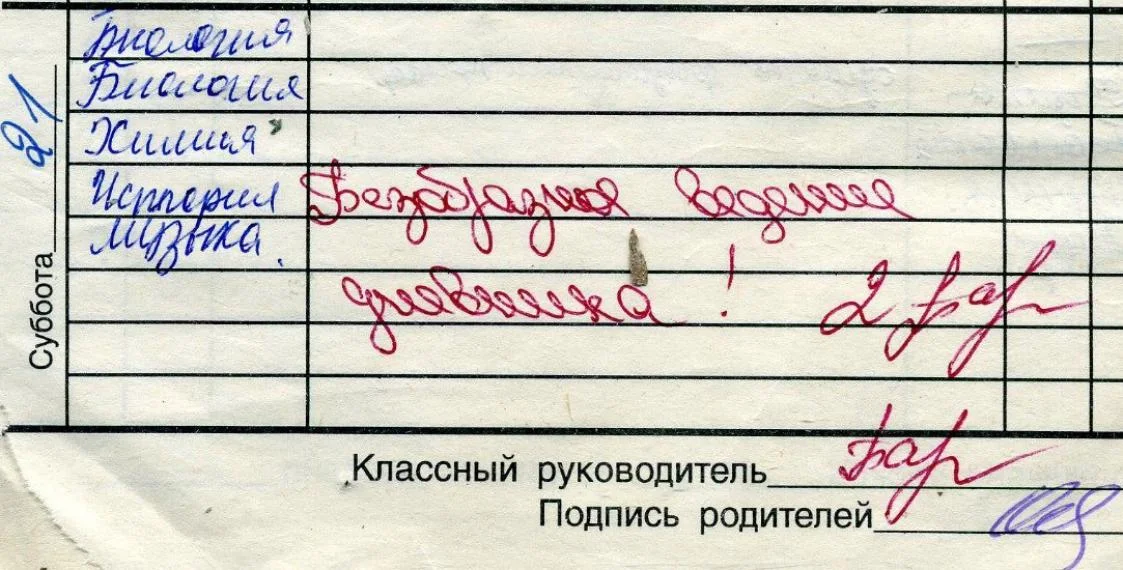 Биология
Биология
Химия
История Безобразное ведение
Музыка.
дневника! 2
21
Суббота
Классный руководитель
Подпись родителей